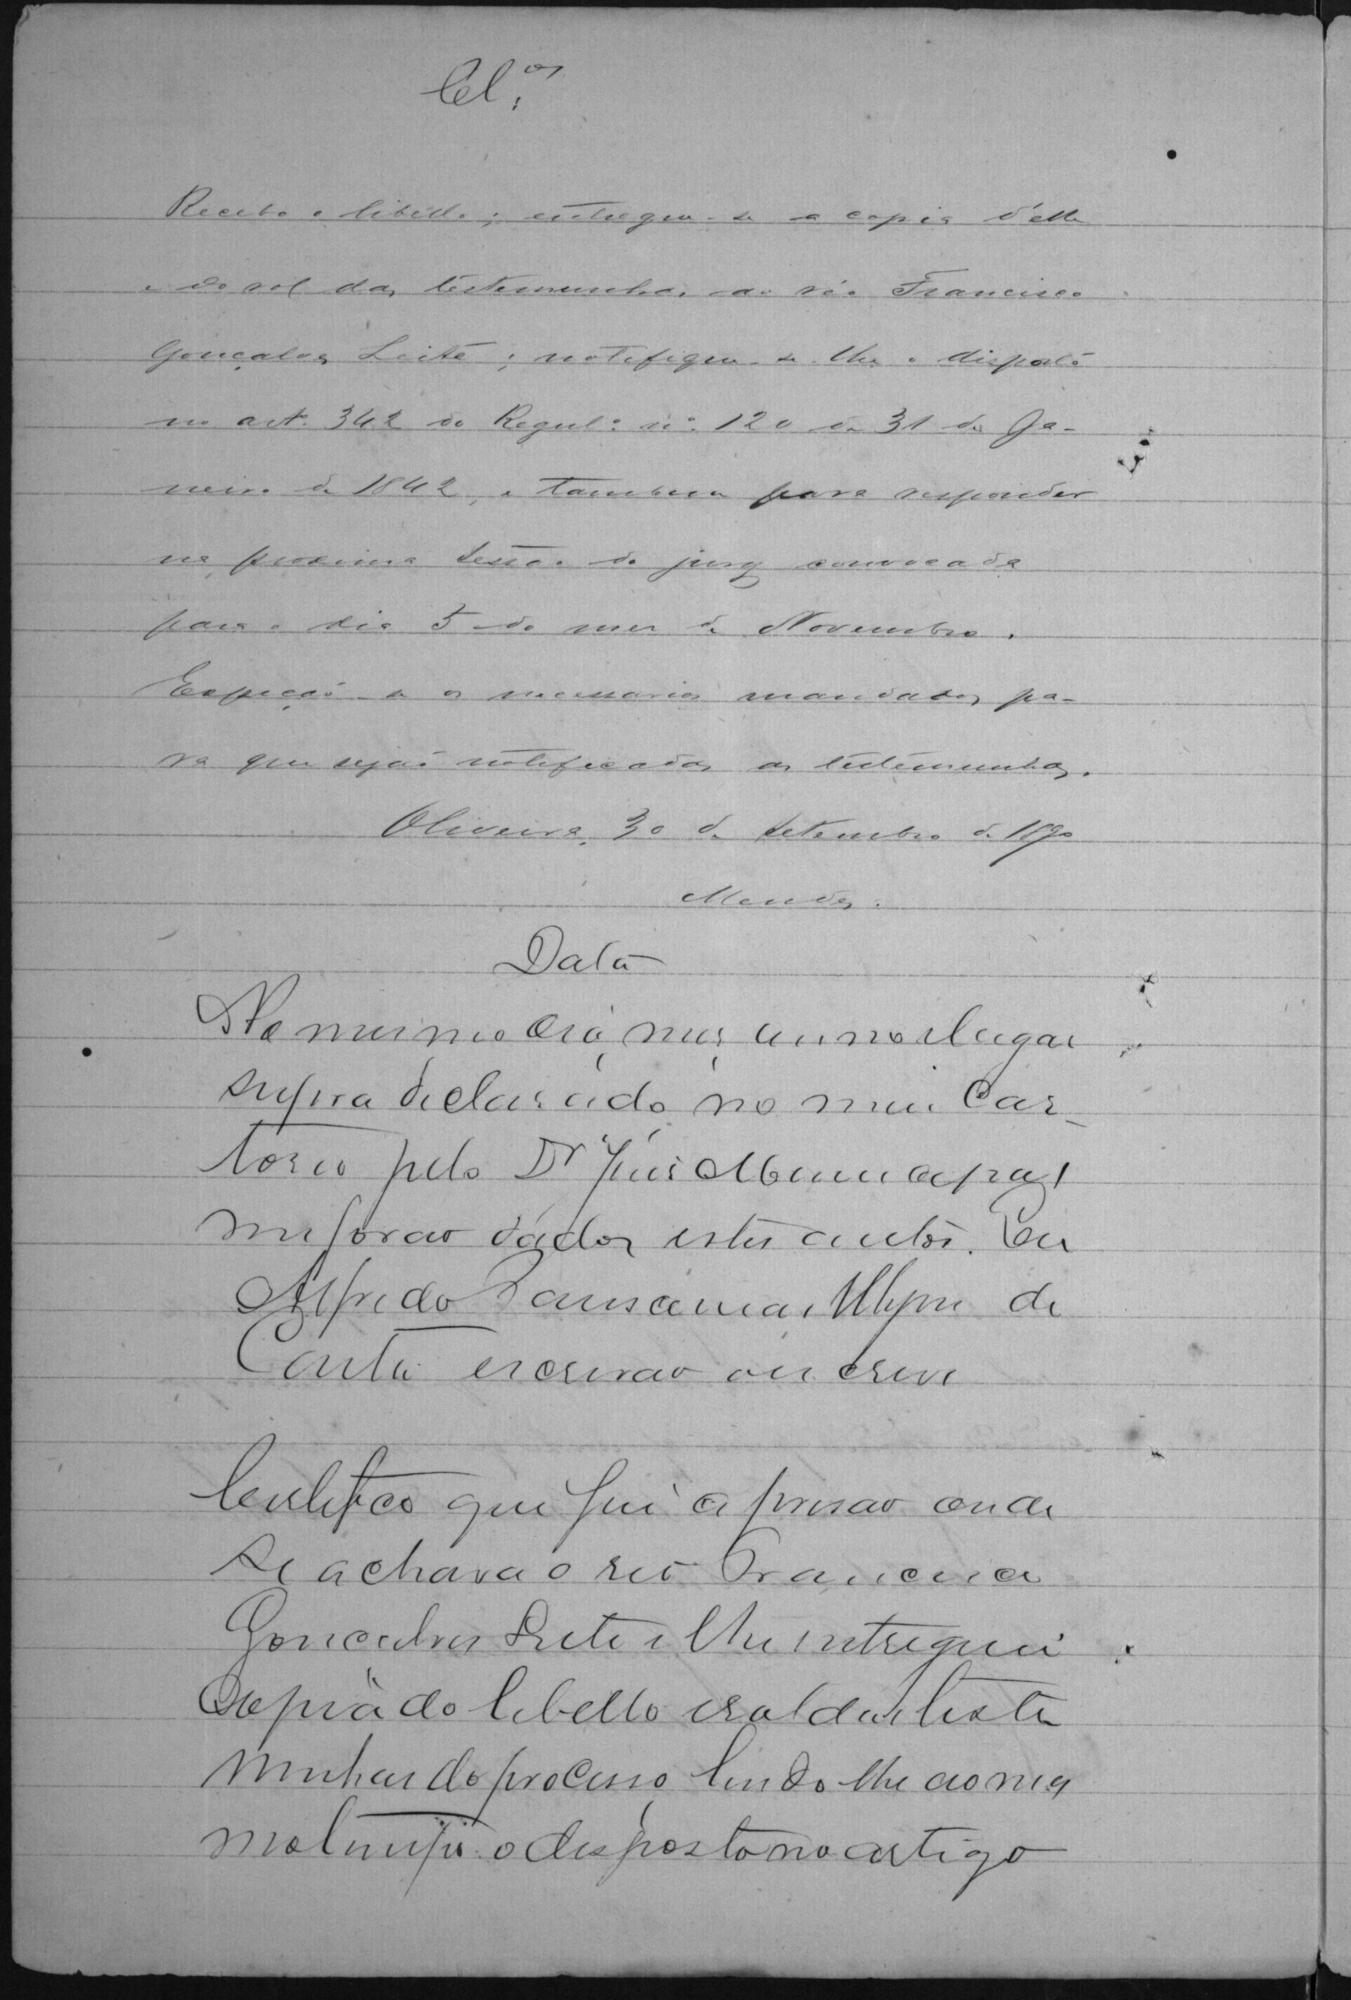 Cl.os
Recebo o libello; entregue-se a copia d'elle
e do rol das testemunhas ao réo Francisco
Gonçalves Leite; notifique-se-lhe o disposto
no art. 342 do Regul.º nº 120 de 31 de Ja-
neiro de 1842, e tambem para responder
na proxima sessão do jury convocada
para o dia 5 do mez de Novembro.
Expeção-se os necessarios mandados pa-
ra que sejão notificadas as testemunhas.
Oliveira, 30 de Setembro de 1890
Mendes.
Data
No mesmo dia, mez, anno e lugar
supra declarado no meu Car-
torio pelo Dr Juis
me forão dados estes autos. Eu
Alfredo de
Couto escrivão o escrevi
Certifico que fui a prisão onde
se achava o reo Francisco
Gonçalves Leite e lhe entreguei
Copia do libello e rol das teste
munhas do processo, lendo lhe ao mes
mo tempo o disposto no artigo